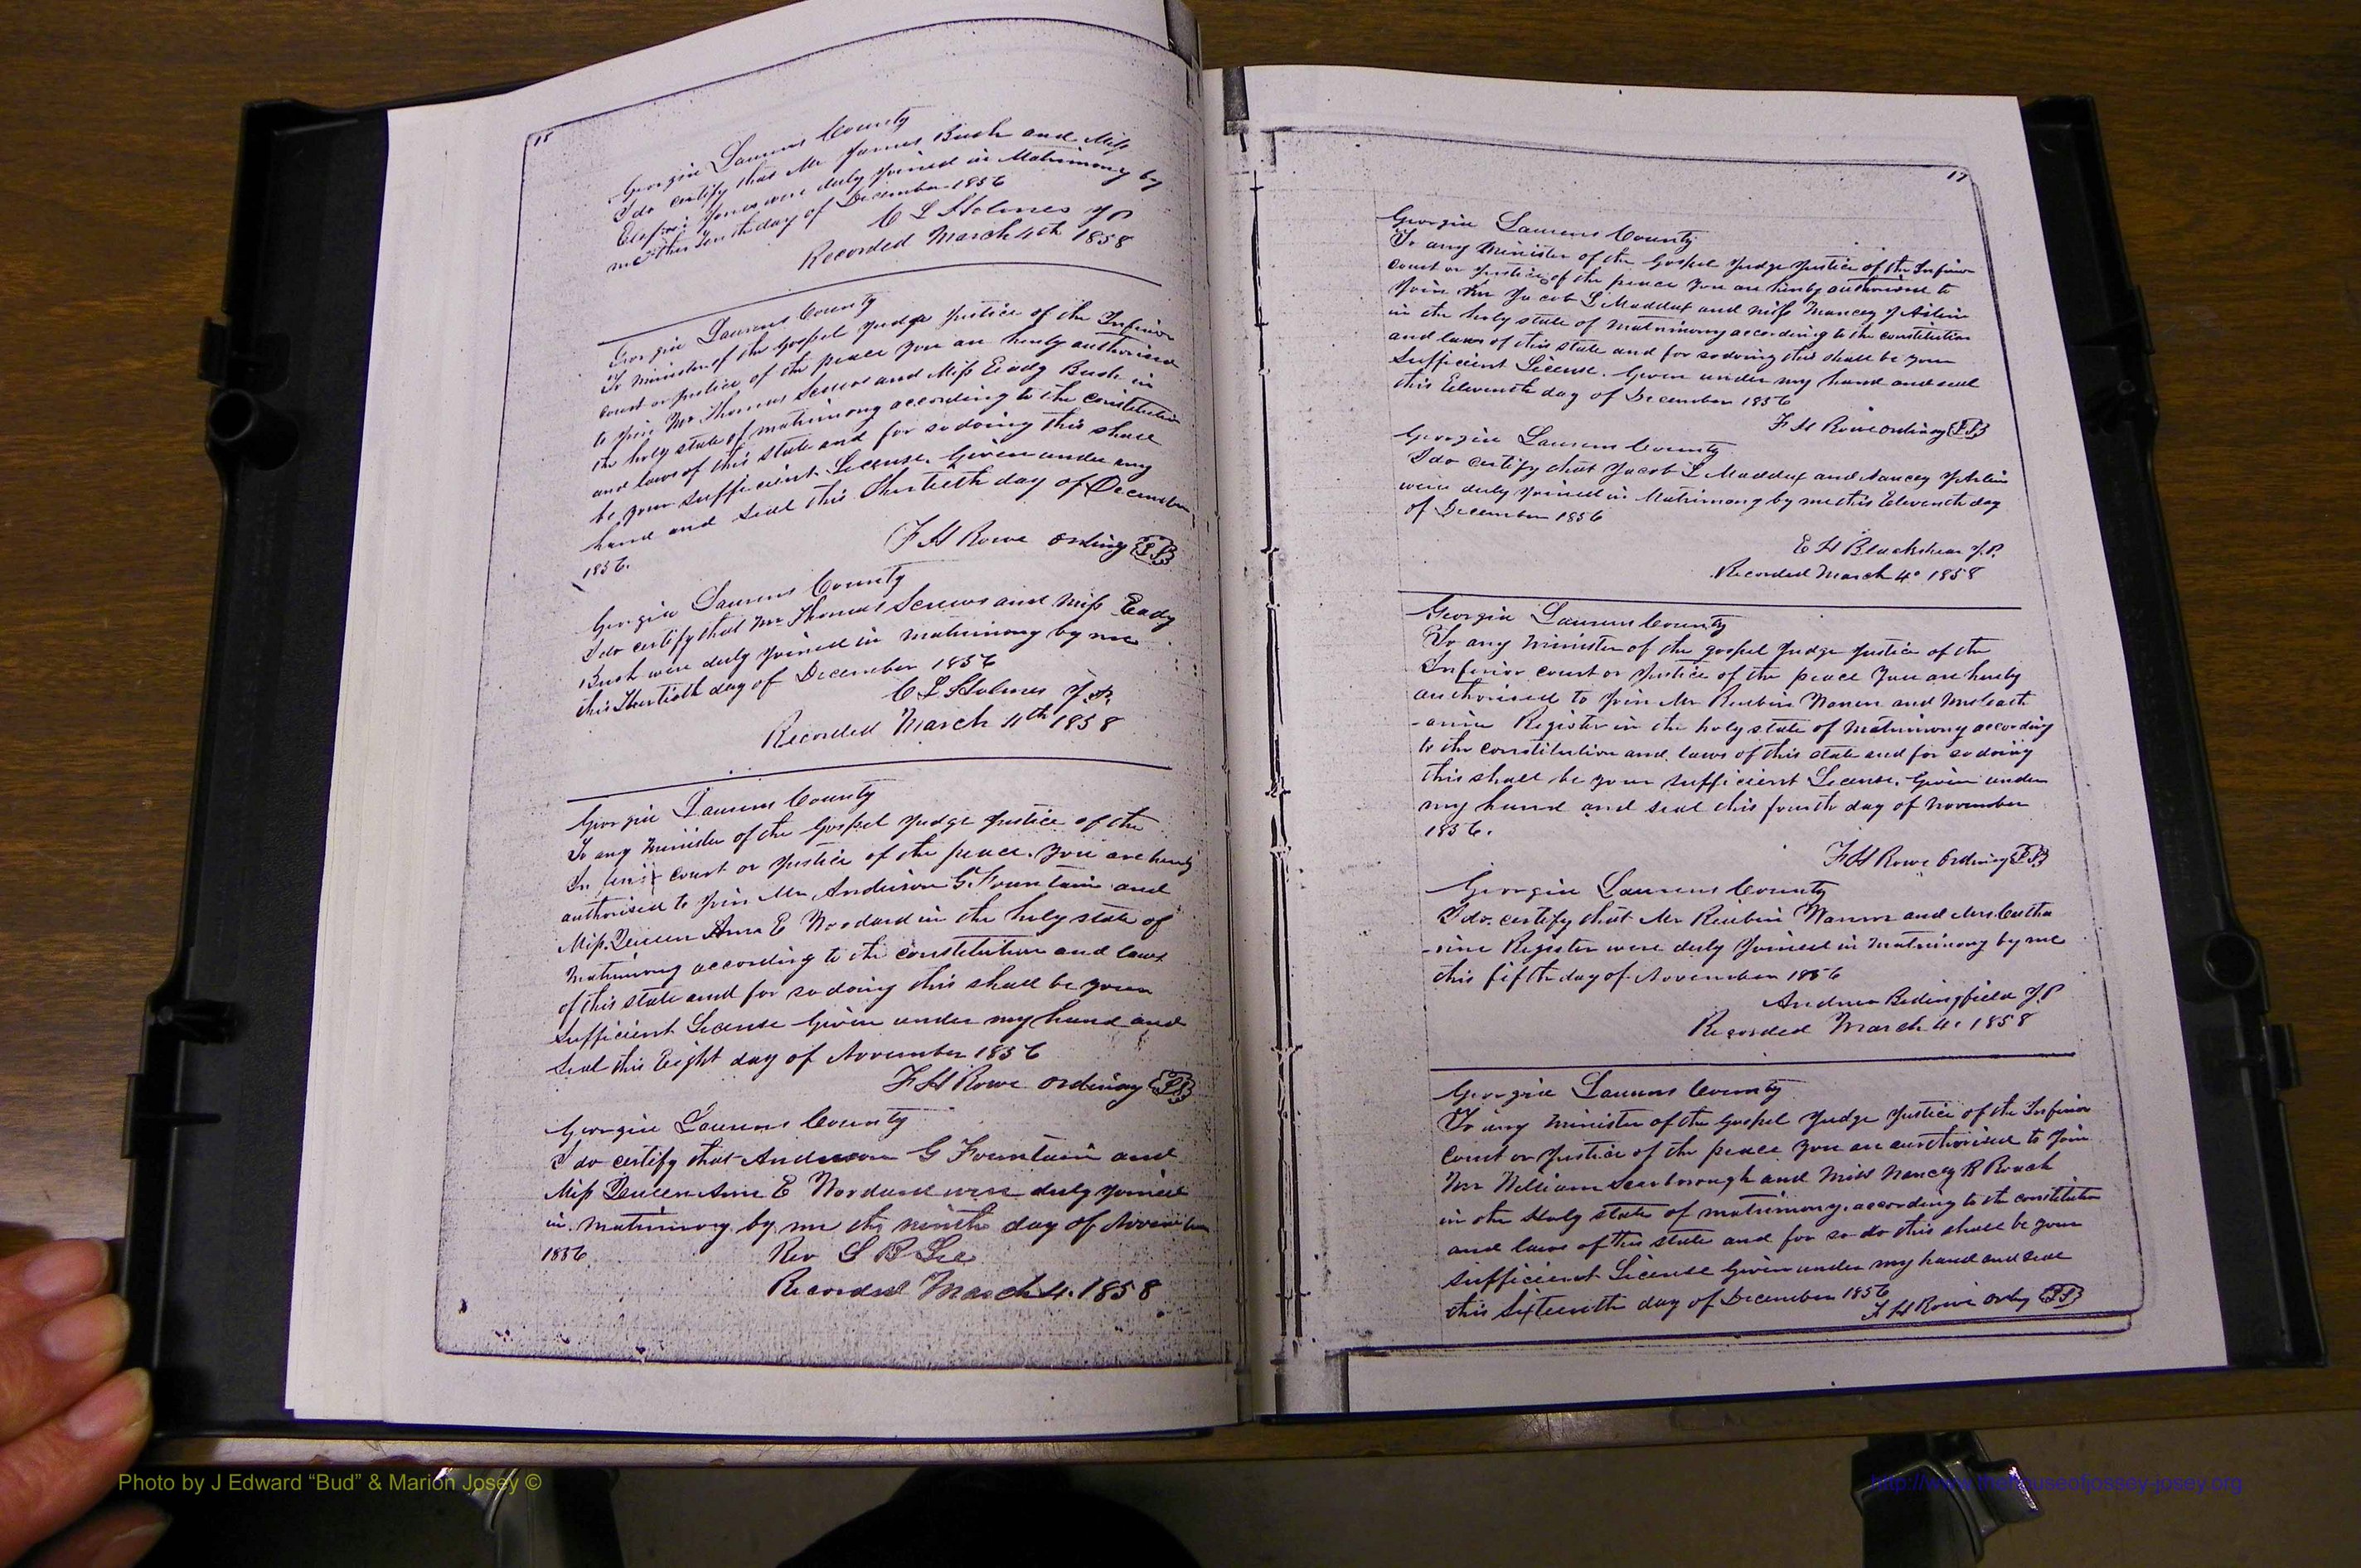 Georgia Laurens County
I do certify that Mr James Bush and Miss
Jones were duly Joined in Matrimony by
me this Tenth day of December 1856
C L Holmes JP
Recorded March 4th 1858
Georgia Laurens County
To Minister of the Gospel Judge Justice of the Inferior
court or Justice of the peace You are hereby authorised
to Join Mr. Thomas Screws and Miss Eady Bush in
the holy state of matrimony according to the constitution
and laws of this state and for so doing this shall
be your sufficient License. Given under my
hand and seal this Thirtieth day of December
1856.
F H Rowe Ordinary L.S.
Georgia Laurens County
I do certify that Mr Thomas Screws and Miss Eady
Bush were duly Joined in matrimony by me
this Thirtieth day of December 1856
C L Holmes J.P.
Recorded March 4th 1858
Georgia Laurens County
To any Minister of the Gospel Judge Justice of the
court or Justice of the peace. You are hereby
authorised to Join Mr Anderson G. Fountain and
Miss Ann E Woodard in the holy state of
Matrimony according to the constitution and laws
of this state and for so doing this shall be your
sufficient License Given under my hand and
seal this Eight day of November 1856
F H Rowe ordinary L.S.
Georgia Laurens County
I do certify that Anderson G Fountain and
Miss Ann E Woodard were duly Joined
in matrimony by me the ninth day of November
1856
Rev S B Lee
Recorded March 4. 1858
17
Georgia Laurens County
To any Minister of the Gospel Judge Justice of the Inferior
court or Justice of the peace You are hereby authorised to
Join Mr Jacob L Maddux and miss Nancey J
in the holy state of Matrimony according to the constitution
and laws of this state and for so doing this shall be your
Sufficient License. Given under my hand and seal
this Eleventh day of December 1856
F H Rowe ordinary L.S.
Georgia Laurens County
I do certify that Jacob L Maddux and Nancey J
were duly Joined in Matrimony by me this Eleventh day
of December 1856
E H Blackshear J.P.
Recorded March 4 1858
Georgia Laurens County
To any Minister of the gospel Judge Justice of the
Inferior court or Justice of the peace You are hereby
authorised to Join Mr Reubin Warren and Mrs Cath
-arine Register in the holy state of Matrimony according
to the constitution and laws of this state and for so doing
this shall be your sufficient License. Given under
my hand and seal this fourth day of November
1856.
F H Rowe Ordinary L.S.
Georgia Laurens County
I do certify that Mr Reubin Warren and Mrs Catha
-rine Register were duly Joined in Matrimony by me
this fifth day of November 1856
Andrew Bedingfield J.P
Recorded March 4. 1858
Georgia Laurens County
To any Minister of the Gospel Judge Justice of the Inferior
Court or Justice of the peace You are authorised to Join
Mr William Scarborough and Miss Nancey R Roach
in the Holy state of matrimony according to the constitution
and laws of this state and for so do this shall be your
sufficient License Given under my hand and seal
this Sixteenth day of December 1856
F H Rowe ordy L.S.
Photo by J Edward “Bud” & Marion Josey ©
http://www.thehouseofjossey-josey.org